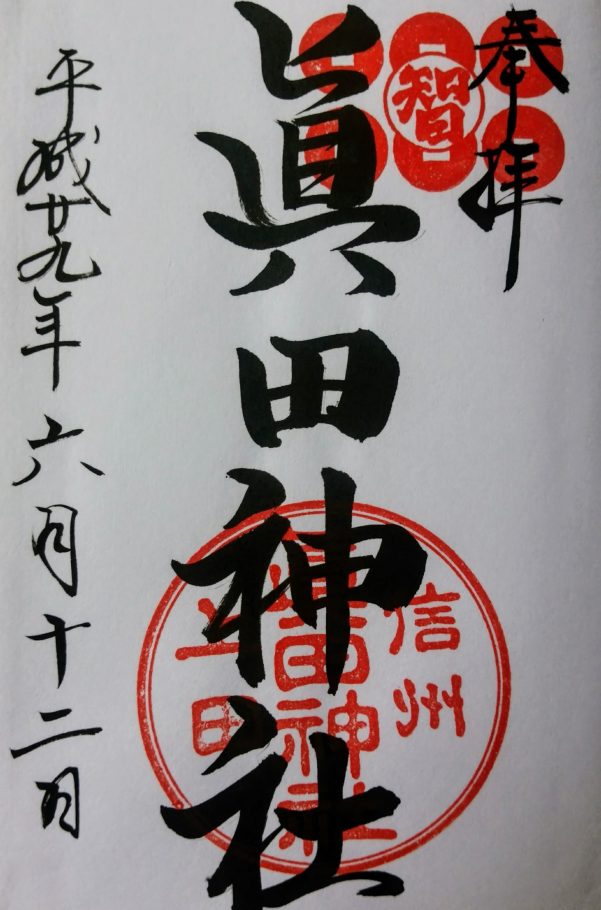 奉拝
智
眞田神社
信州
眞田神社
上田
平成廿九年六月十二日